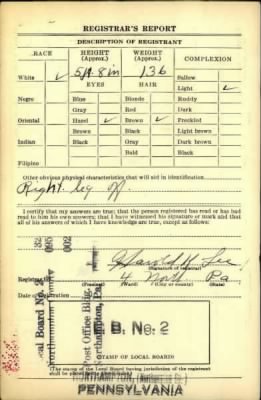 REGISTRAR'S REPORT
DESCRIPTION OF REGISTRANT
RACE HEIGHT (Approx.) WEIGHT (Approx.) COMPLEXION
White ✓ 5 ft. 8 in 136 Sallow
EYES HAIR Light ✓
Negro Blue Blonde Ruddy
Gray Red Dark
Oriental Hazel ✓ Brown ✓ Freckled
Brown Black Light brown
Indian Black Gray Dark brown
Bald Black
Filipino
Other obvious physical characteristics that will aid in identification
Right leg off
I certify that my answers are true; that the person registered has read or has had
read to him his own answers; that I have witnessed his signature or mark and that
all of his answers of which I have knowledge are true, except as follows:
Harold H. Lee
(Signature of registrar)
Registrar 4 North Pa
(Precinct) (Ward) (City or county) (State)
cal Board No. 2
Northampton County
095
002
Post Office Bldg.
hampton, Pa.
B. No. 2
STAMP OF LOCAL BOARD
(The stamp of the Local Board having jurisdiction of the registrant
shall be placed in the above space.)
NORTHAMPTON
PENNSYLVANIA